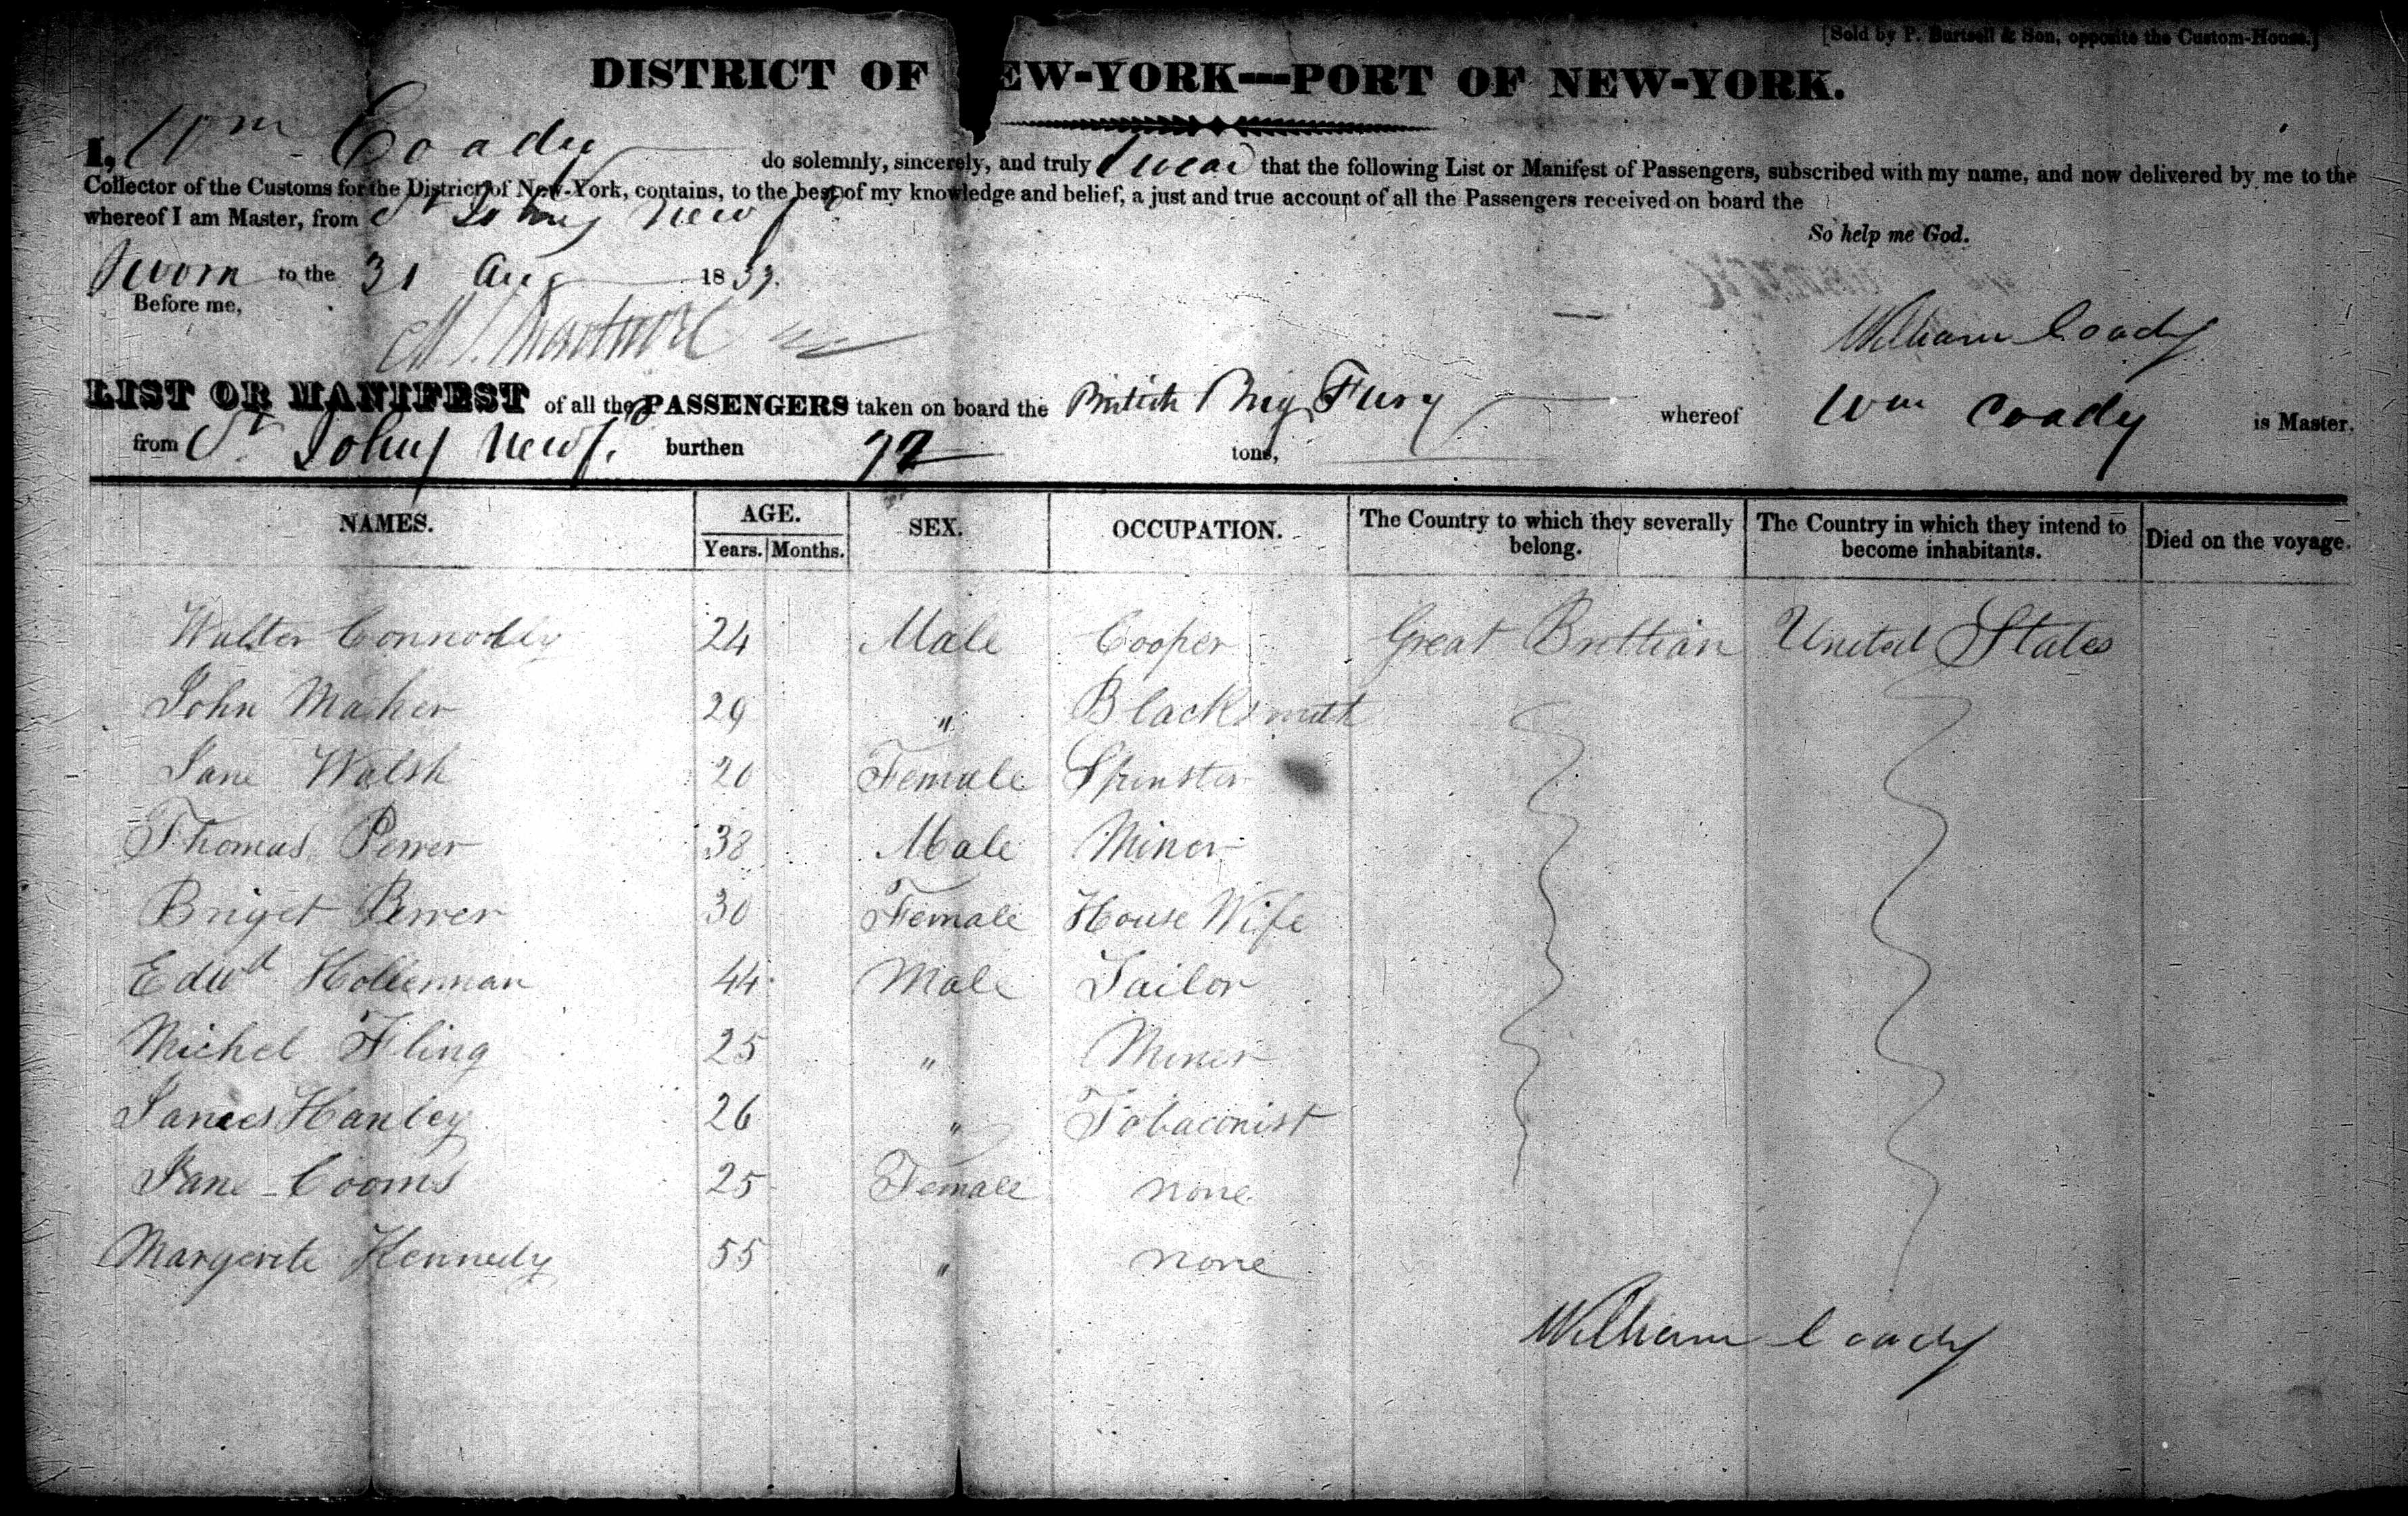 [Sold by P. Bartsell & Son, opposite the Custom-House.]
DISTRICT OF EW-YORK—PORT OF NEW-YORK.
I, Wm Coady do solemnly, sincerely, and truly swear that the following List or Manifest of Passengers, subscribed with my name, and now delivered by me to the
Collector of the Customs for the District of New-York, contains, to the best of my knowledge and belief, a just and true account of all the Passengers received on board the
whereof I am Master, from St Johns Newfd
So help me God.
Sworn to the 31 Aug 1839.
Before me,
William Coady
LIST OR MANIFEST of all the PASSENGERS taken on board the British Brig Fury whereof Wm Coady is Master.
from St Johns Newfd burthen 92 tons,
NAMES. AGE. SEX. OCCUPATION. The Country to which they severally belong. The Country in which they intend to become inhabitants. Died on the voyage.
Years. Months.
Walter Connolly 24 Male Cooper Great Brittian United States
John Maher 29 " Blacksmith
Jane Walsh 20 Female Spinster
Thomas Perrer 38 Male Miner
Briget Perrer 30 Female House Wife
Edwd Hollernnan 44 Male Tailor
Michel Fling 25 " Miner
James Hanley 26 " Tobaconist
Jane Cooms 25 Female none
Margerete Kennedy 55 " none
William Coady